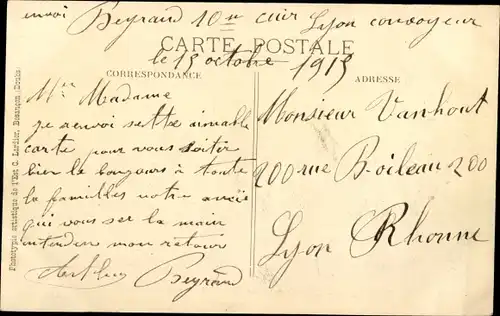 envoi Beyraud 10me cuir Lyon convoyeur
CARTE POSTALE
le 15 octobre 1915
CORRESPONDANCE
ADRESSE
Mr Madame
je renvoi sette aimable
carte pour vous soiter
bien le bonjours à toute
la familles notre
qui vous ser la main
intenden mon retour
Beyraud
Monsieur Vanhout
200 rue Boileau 200
Lyon Rhonne
Phototypie artistique de l'Edit C. Lardier, Besançon (Doubs)